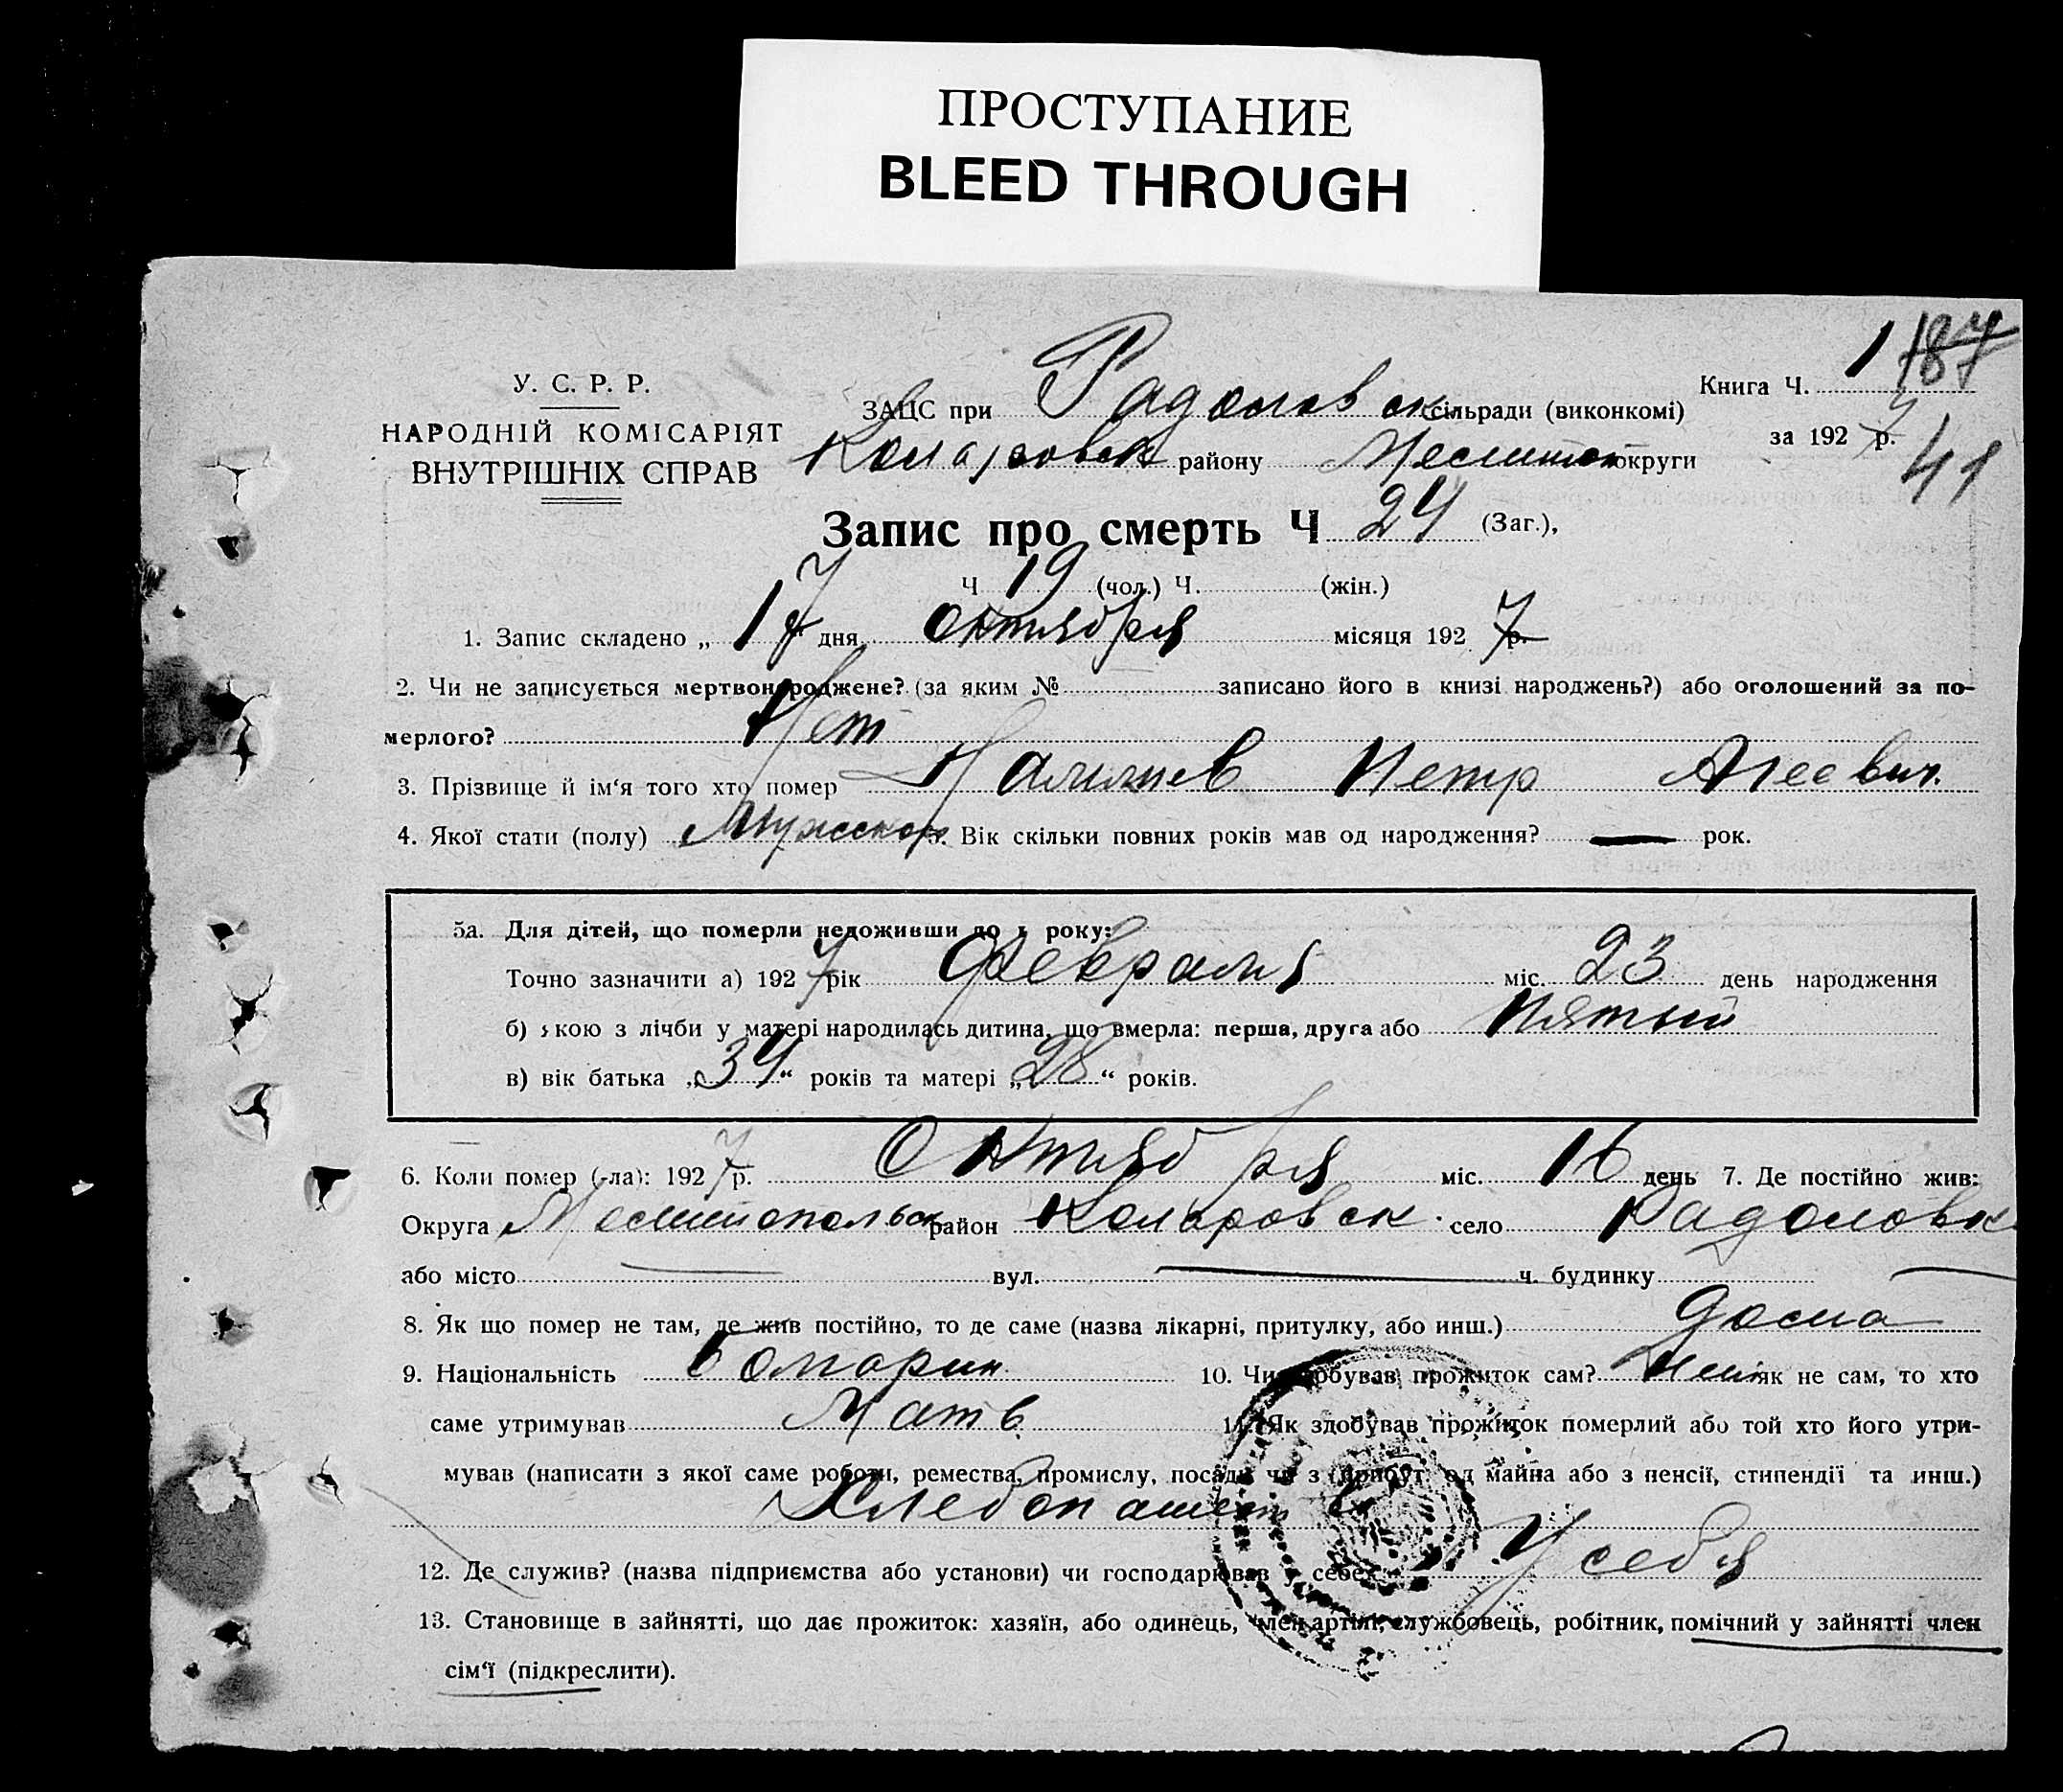 ПРОСТУПАНИЕ
BLEED THROUGH
У. С. Р. Р.
НАРОДНІЙ КОМІСАРІЯТ
ВНУТРІШНІХ СПРАВ
Книга Ч. 1 187
ЗАЦС при Радоловск сільради (виконкомі)
за 1927 р.
41
Коларовск району округи
Запис про смерть Ч 24 (Заг.),
Ч 19 (чол.) Ч. (жін.)
1. Запис складено „ 17 дня Октября місяця 1927 р.
2. Чи не записується мертвонароджене? (за яким № записано його в книзі народжень?) або оголошений за по-
мерлого? Нет
3. Прізвище й ім‘я того хто помер Петр Агеевич.
4. Якої стати (полу) Мужской 5. Вік скільки повних років мав од народження? — рок.
5а. Для дітей, що померли недоживши до 1 року:
Точно зазначити а) 1927 рік Февраля міс. 23 день народження
б) якою з лічби у матері народилась дитина, що вмерла: перша, друга або пятый
в) вік батька „34“ років та матері „28“ років.
6. Коли помер (-ла): 1927 р. Октября міс. 16 день 7. Де постійно жив:
Округа район Коларовск село Радоловк
або місто — вул. — ч. будинку —
8. Як що помер не там, де жив постійно, то де саме (назва лікарні, притулку, або инш.) дома
9. Національність Болгарин 10. Чи здобував прожиток сам? як не сам, то хто
саме утримував Мать 11. Як здобував прожиток померлий або той хто його утри-
мував (написати з якої саме роботи, ремества, промислу, посади чи з прибут. од майна або з пенсії, стипендії та инш.)
Хлебопашест
12. Де служив? (назва підприємства або установи) чи господарював у себе? У себя
13. Становище в зайнятті, що дає прожиток: хазяїн, або одинець, член артілі, службовець, робітник, помічний у зайнятті член
сім‘ї (підкреслити).